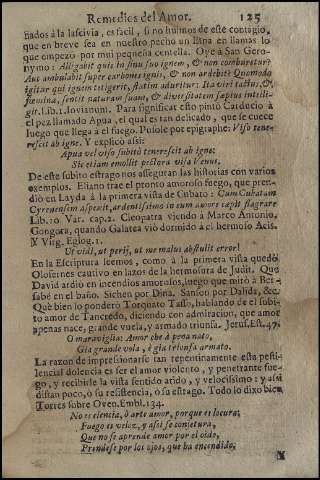 Remedios del Amor. 125
nados à la lascivia, es facil, si no huimos de este contagio,
que en breve sea en nuestro pecho un Etna en llamas lo
que empezò por mui pequeña centella. Oye à San Gero-
nymo: Alligabit quis in sinu suo ignem, & non comburetur?
Aut ambulabit super carbones ignis, & non ardebit? Quomodo
igitur qui ignem tetigerit, statim aduritur: Ita viri tactus, &
fœmina, sentit naturam suam, & diversitatem sexus intelli-
git. Lib. 1. Iovianum. Para significar esto pintò Carducio à
el pez llamado Apua, el qual es tan delicado, que se cuece
luego que llega à el fuego. Pusole por epigraphe: Viso tene-
rescit ab igne. Y explicò assi:
Apua vel viso subitò tenerescit ab igne:
Sic etiam emollit pectora visa Venus.
De este subito estrago nos asseguran las historias con varios
exemplos. Eliano trae el pronto amoroso fuego, que pren-
diò en Layda à la primera vista de Cubato: Cum Cubatum
Cyrenensem aspexit, ardentissimo in eum amore capit flagrare
Lib. 10. Var. cap. 2. Cleopatra viendo à Marco Antonio,
Gongora, quando Galatea viò dormido à el hermoso Acis.
X Virg. Eglog. 1.
Ut vidi, ut perij, ut me malus abstulit error!
En la Escriptura leemos, como à la primera vista quedò
Olofernes cautivo en lazos de la hermosura de Judit. Que
David ardiò en incendios amorosos, luego que mirò à Bet-
sabé en el baño. Sichen por Dina, Sanson por Dalida, &c.
Què bien lo ponderò Torquato Tasso, hablando de el subi-
to amor de Tancredo, diciendo con admiracion, que amor
apenas nace, grande vuela, y armado triunfa. Jerus. Est. 47.
O maraviglia! Amor che à pena nato,
Gia grande vola, è gia triunfa armato.
La razon de impressionarse tan repentinamente esta pesti-
lencial dolencia es ser el amor violento, y penetrante fue-
go, y recibirle la vista sentido arido, y velocissimo: y assi
distan poco, ò su resistencia, ò su estrago. Todo lo dixo bien
Torres sobre Oven. Embl. 134.
No es ciencia, ò arte amor, porque es locura;
Fuego es veloz, y assi se conjetura,
Que no se aprende amor por el oido,
Prendese por los ojos, que ha encendido.